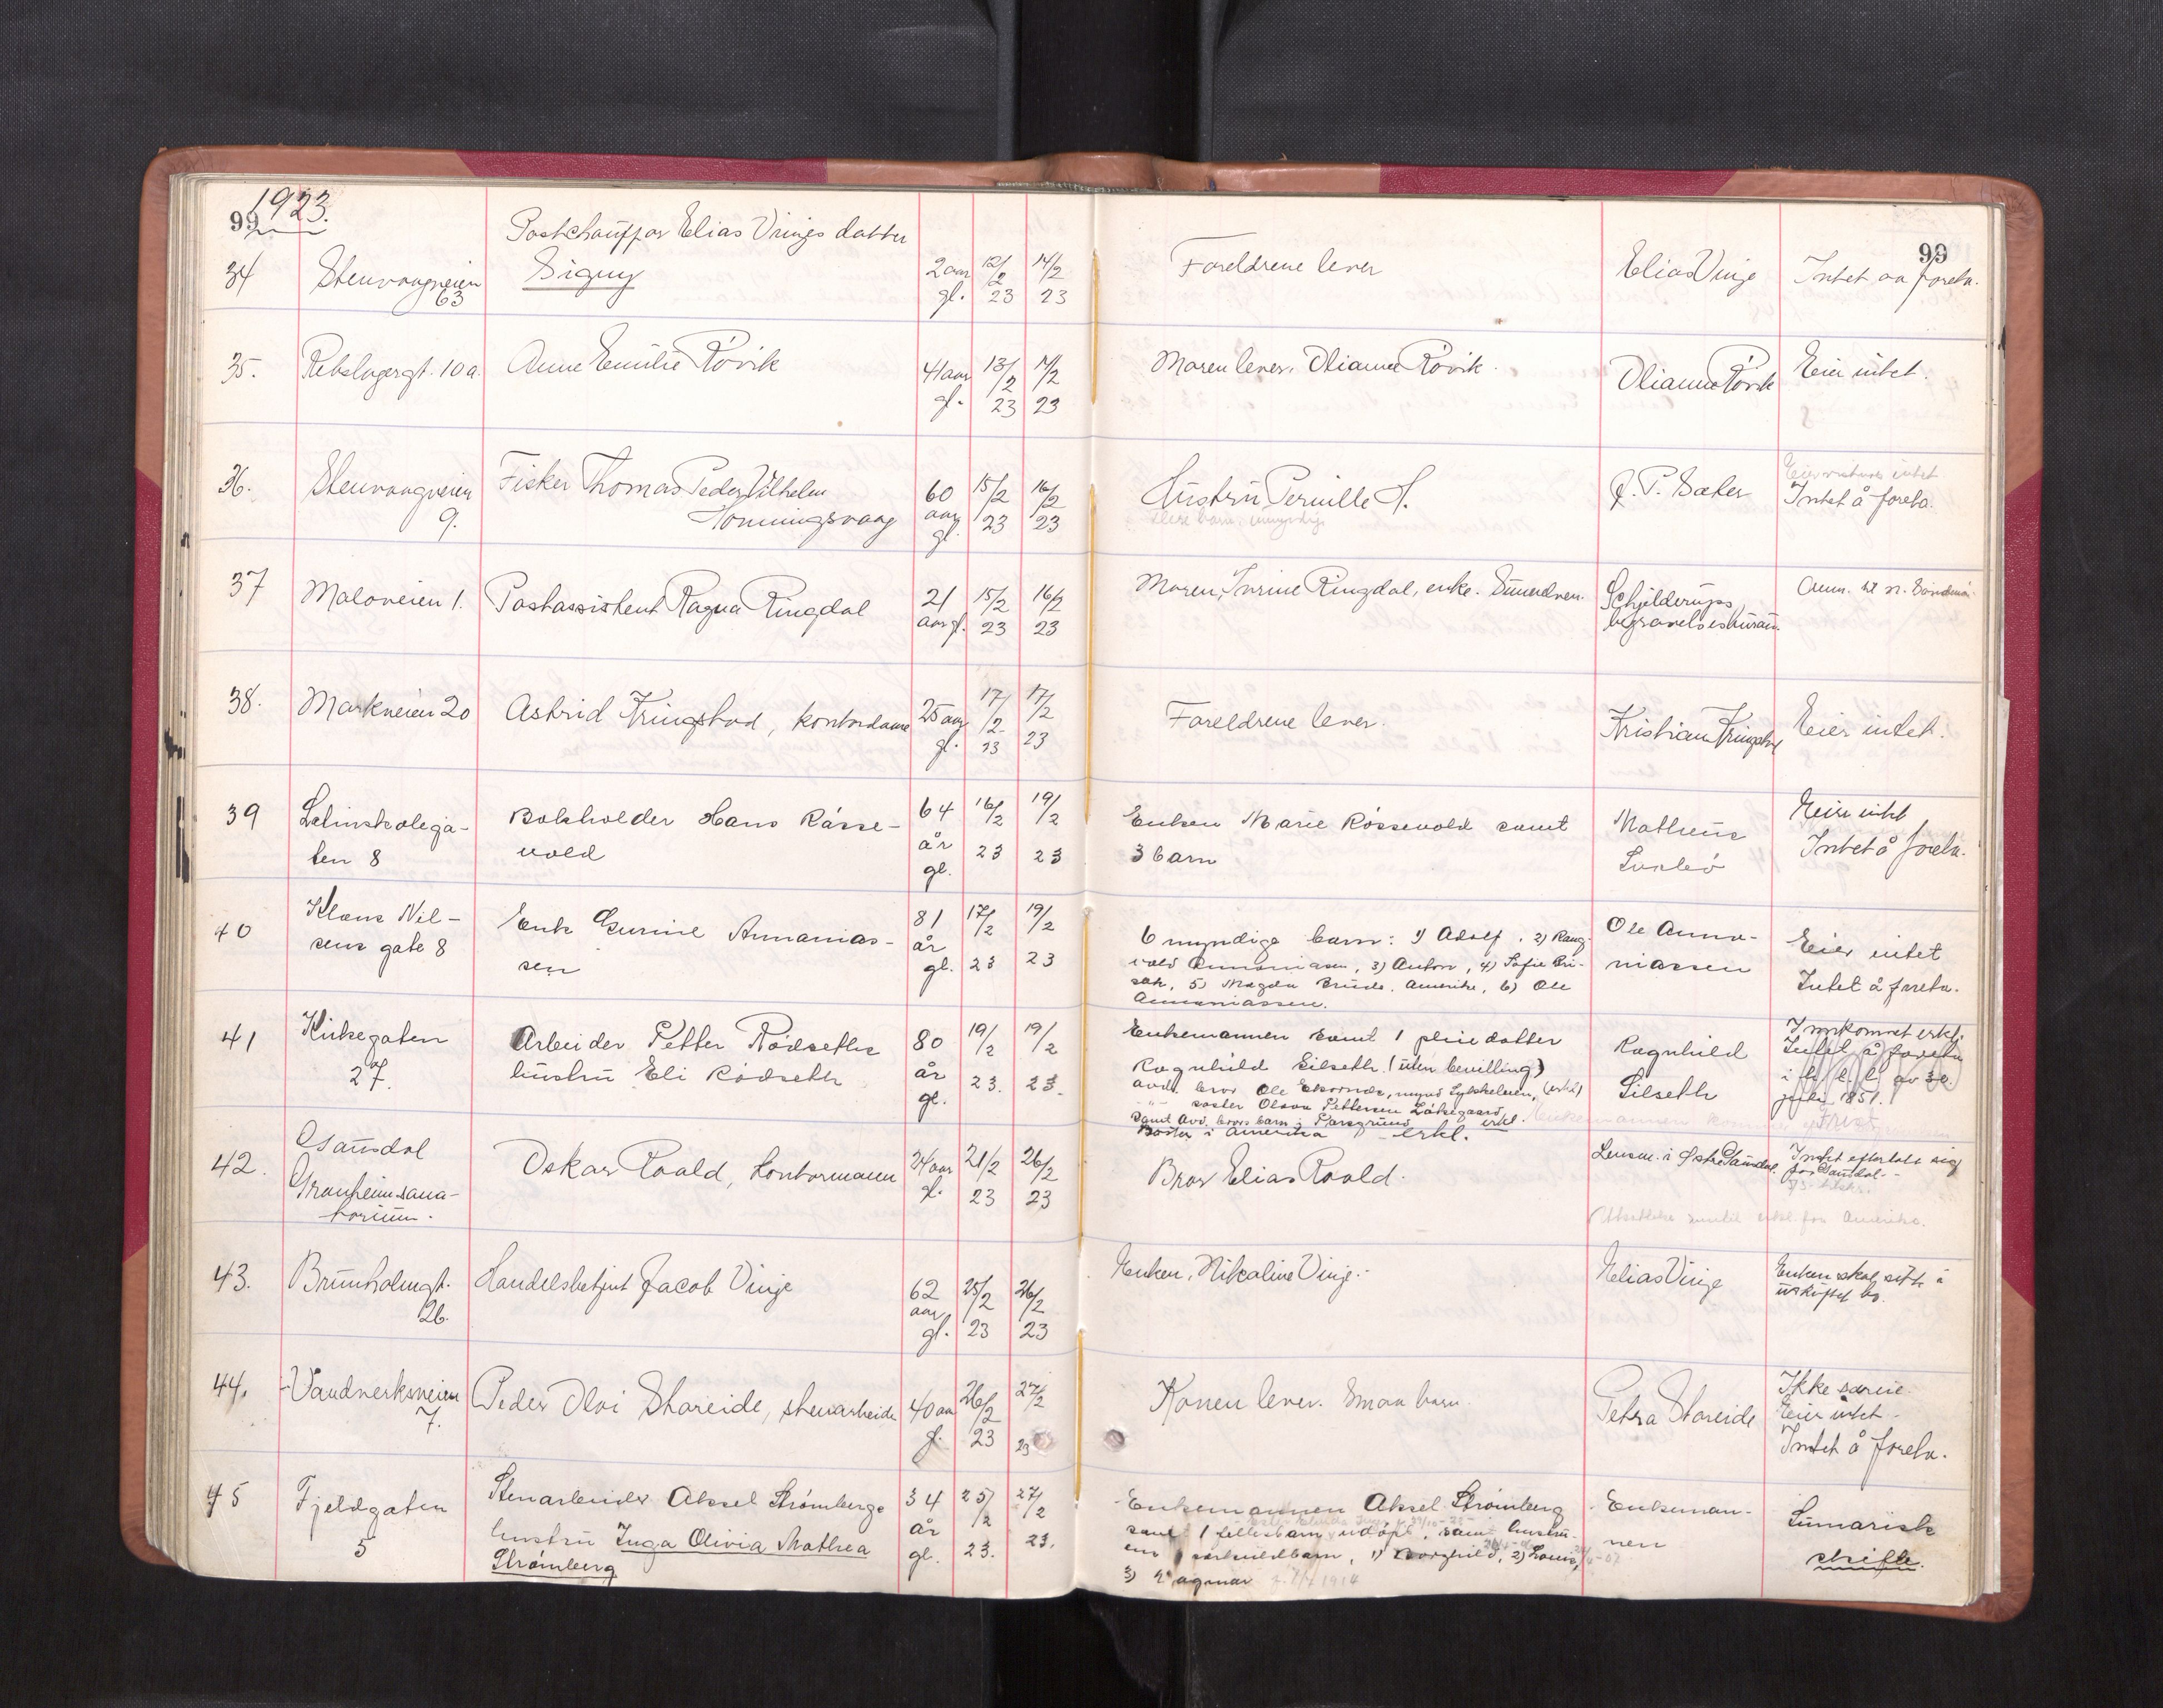 1923.
99
99
34
Stenvaagveien
63
Postchauffør Elias Vinjes datter
Signy
2 aar
gl.
12/2
23
14/2
23
Foreldrene lever
Elias Vinje
Intet aa foreta.
35.
Rebslagergt. 10a.
Anne Emilie Røvik
41 aar
gl.
13/2
23
14/2
23
Moren lever, Oliane Røvik.
Oliane Røvik
Eier intet.
36.
Stenvaagveien
9.
Fisker Thomas Peder Vilhelm
Honningsvaag
60
aar
gl.
15/2
23
16/2
23
Hustru Pernille H.
J. P. Sæter
Intet å foreta.
37
Moloveien 1.
Postassistent Ragna Ringdal
21
aar gl.
15/2
23
16/2
23
Moren, Inrine Ringdal, enke.
Schjelderups
begravelsesbureau.
Anm. til N. Søndmør
38.
Markveien 20
Astrid Kringstad, kontordame
25 aar
gl.
17/2
23
17/2
23
Foreldrene lever.
Kristian Kringstad
Eier intet.
39
Latinskolega-
ten 8
Bokholder Hans Røsse-
vold
64
år
gl.
16/2
23
19/2
23
Enken Marie Røssevold samt
3 barn
Matheus
Eier intet
Intet å foreta.
40
Klaus Nil-
sens gate 8
Enke Gurine Annanias-
sen
81
år
gl.
17/2
23
19/2
23
6 myndige barn: 1) Adolf, 2) Rang-
vald Annaniasen, 3) Anton, 4) Sofie
5) Magda Amerika, 6) Ole
Annaniassen.
Ole Anna-
niassen
Eier intet
Intet å foreta.
41
Kirkegaten
27.
Arbeider Petter Rødseths
hustru Eli Rødseth
80
år
gl.
19/2
23.
19/2
23.
Enkemannen samt 1 pleiedatter
Ragnhild Silseth (uten bevilling)
avd. bror Ole
søster Olava Pettersen
samt avd. brors barn i Porsgrund erkl.
Søster i Amerika erkl.
Ragnhild
Silseth
Innkommet erkl.
Intet å foreta
i h. t. l. av 30
juli 1851.
42.
Gausdal
Granheim sana-
torium.
Oskar Roald, kontormann
24 aar
gl.
21/2
23
26/2
23
Bror Elias Roald.
Lensm. i Østre Gausdal.
Intet efterlatt sig
for Gausdal.
43.
Brunholmgt.
26.
Handelsbetjent Jacob Vinje
62
aar
gl.
25/2
23
26/2
23
Enken, Nikoline Vinje.
Elias Vinje
Enken skal sitte i
uskiftet bo.
44.
Vandverksveien
7.
Peder Olai Shareide, stenarbeider
40 aar
gl.
26/2
23
27/2
23
Konen lever. Smaa barn.
Petra Shareide
Ikke særeie.
Eier intet.
Intet å foreta.
45
Fjeldgaten
5
Stenarbeider Aksel Strømbergs
hustru Inga Olivia Mathea
Strømberg
34
år
gl.
25/2
23.
27/2
23.
Enkemannen Aksel Strømberg
samt 1 fellesbarn udøpt, samt hustru-
ens særkuldbarn, 1) Borghild, 2) Louis,
3) Ragnar
Enkeman-
nen
Sumarisk
skifte.